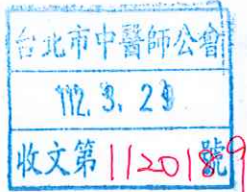 台北市中醫師公會
112. 3. 29
收文第1120189號